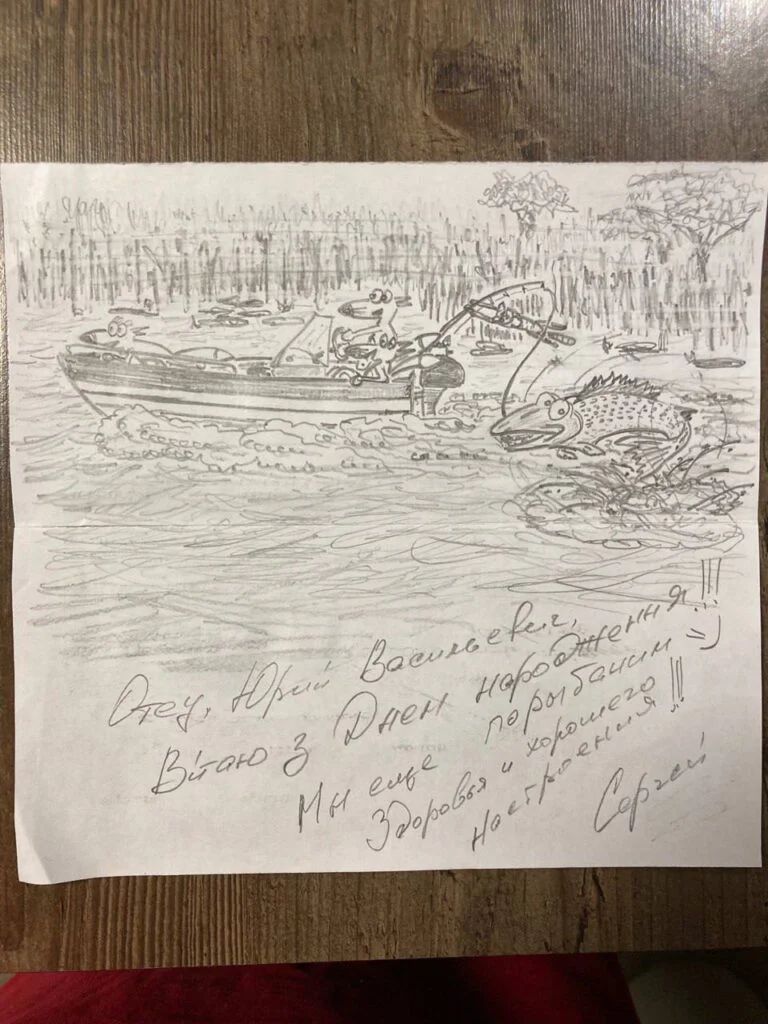 Отец, Юрий Васильевич,
Вітаю з Днем народження!!!
Мы еще порыбачим =)
Здоровья и хорошего
настроения!!!
Сергей